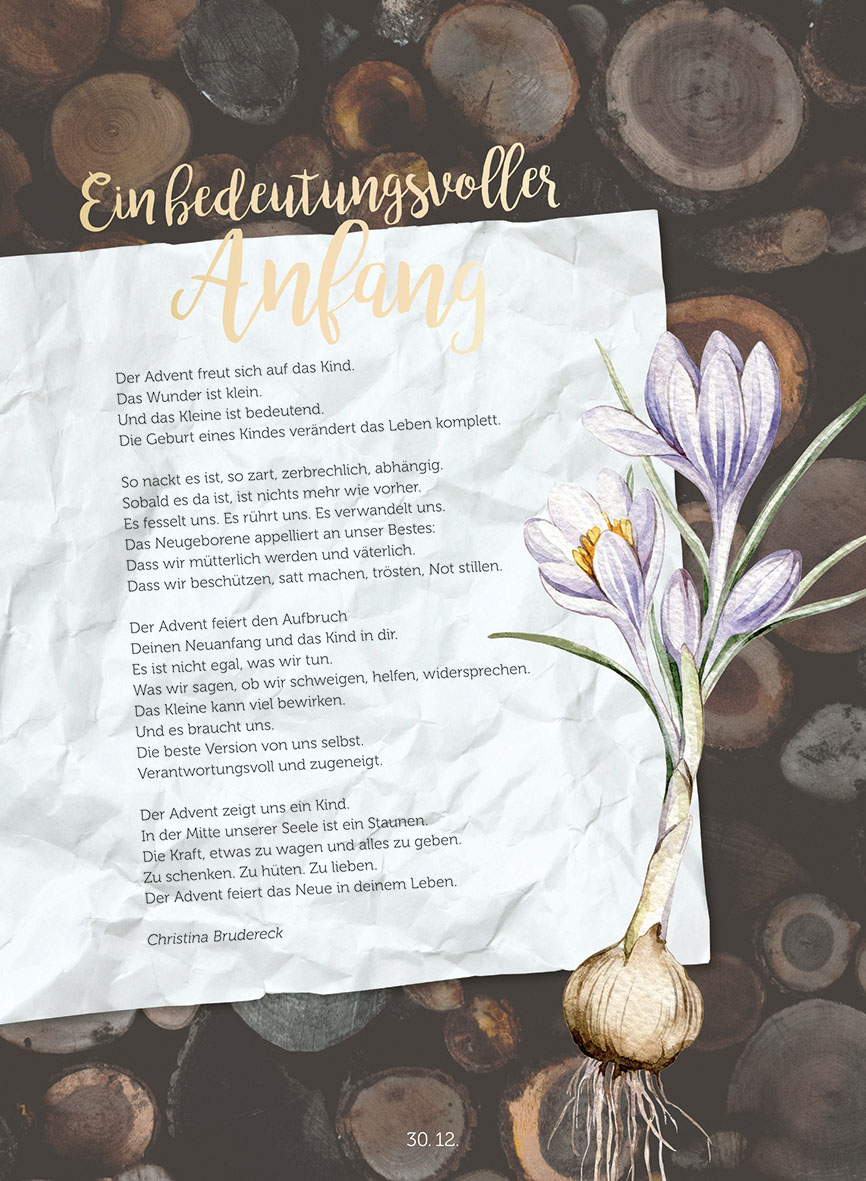 Ein bedeutungsvoller
Anfang
Der Advent freut sich auf das Kind.
Das Wunder ist klein.
Und das Kleine ist bedeutend.
Die Geburt eines Kindes verändert das Leben komplett.
So nackt es ist, so zart, zerbrechlich, abhängig.
Sobald es da ist, ist nichts mehr wie vorher.
Es fesselt uns. Es rührt uns. Es verwandelt uns.
Das Neugeborene appelliert an unser Bestes:
Dass wir mütterlich werden und väterlich.
Dass wir beschützen, satt machen, trösten, Not stillen.
Der Advent feiert den Aufbruch
Deinen Neuanfang und das Kind in dir.
Es ist nicht egal, was wir tun.
Was wir sagen, ob wir schweigen, helfen, widersprechen.
Das Kleine kann viel bewirken.
Und es braucht uns.
Die beste Version von uns selbst.
Verantwortungsvoll und zugeneigt.
Der Advent zeigt uns ein Kind.
In der Mitte unserer Seele ist ein Staunen.
Die Kraft, etwas zu wagen und alles zu geben.
Zu schenken. Zu hüten. Zu lieben.
Der Advent feiert das Neue in deinem Leben.
Christina Brudereck
30. 12.